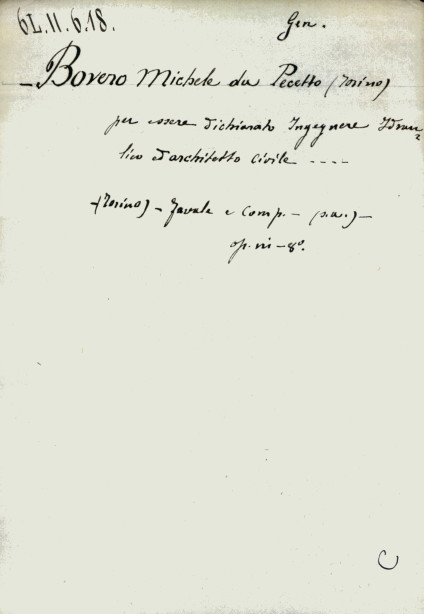 6L.II.6.18.
Gen.
- Bovero Michele da Pecetto (Torino)
per essere dichiarato Ingegnere Idrau=
lico ed architetto Civile ----
-(Torino) - Favale e Comp. - (s.a.) -
op. in - 8º.
C